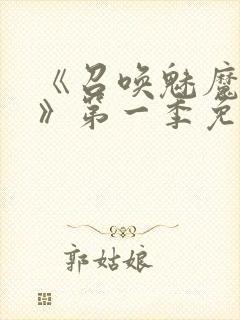 《召唤魅魔
》第一季免
郭姑娘